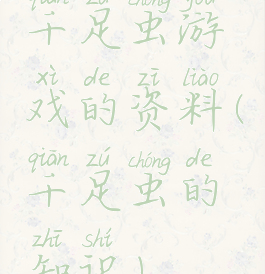 qiān zú chóng yóu
千足虫游
xì de zī liào
戏的资料(
qiān zú chóng de
千足虫的
zhī shí
知识)